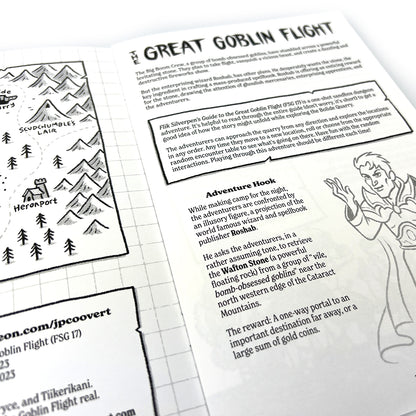 THE GREAT GOBLIN FLIGHT
The Big Boom Crew, a group of bomb-obsessed goblins, have stumbled across a powerful
levitating stone. They plan to take flight,
destructive fireworks show.
But the enterprising wizard Roshab, has other plans. He desperately wants the stone, the
key ingredient in crafting a mass-produced spellbook. Roshab is offering an enticing reward
for the stone, drawing the attention of ghoulish mercenaries, enterprising apprentices, and
the adventurers.
Flik Silverpen's Guide to the Great Goblin Flight (FSG 17) is a one-shot sandbox dungeon
adventure. It's helpful to read through the entire guide (don't worry, it's short!) to get a
good idea of how the story might unfold while exploring the Bulinbr Quarry.
The adventurers can approach the quarry from any direction and explore the locations
in any order. Any time they move to a new location, roll or choose from the appropriate
random encounter table to see what's going on there. Have fun with the random
interactions. Playing through this adventure should be different each time!
Adventure Hook
While making camp for the night,
the adventurers are confronted by
an illusory figure, a projection of the
world famous wizard and spellbook
publisher Roshab.
He asks the adventurers, in a
rather assuming tone, to retrieve
the Walton Stone (a powerful
floating rock) from a group of "vile,
bomb-obsessed goblins" near the
north western edge of the Cataract
Mountains.
The reward: A one-way portal to an
important destination far away, or a
large sum of gold coins.
SCUDCHUMBLE'S
LAIR
HERONPORT
eon.com/jpcoovert
Goblin Flight (FSG 17)
2023
023
ryce, and Tiikerikani.
Goblin Flight real.